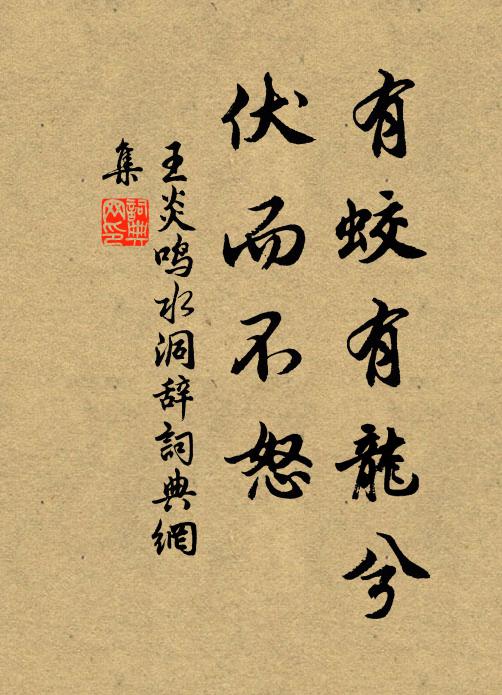 有蛟有龍兮
伏而不怒
王炎鸣水洞辞詞典網
集
詞典網印